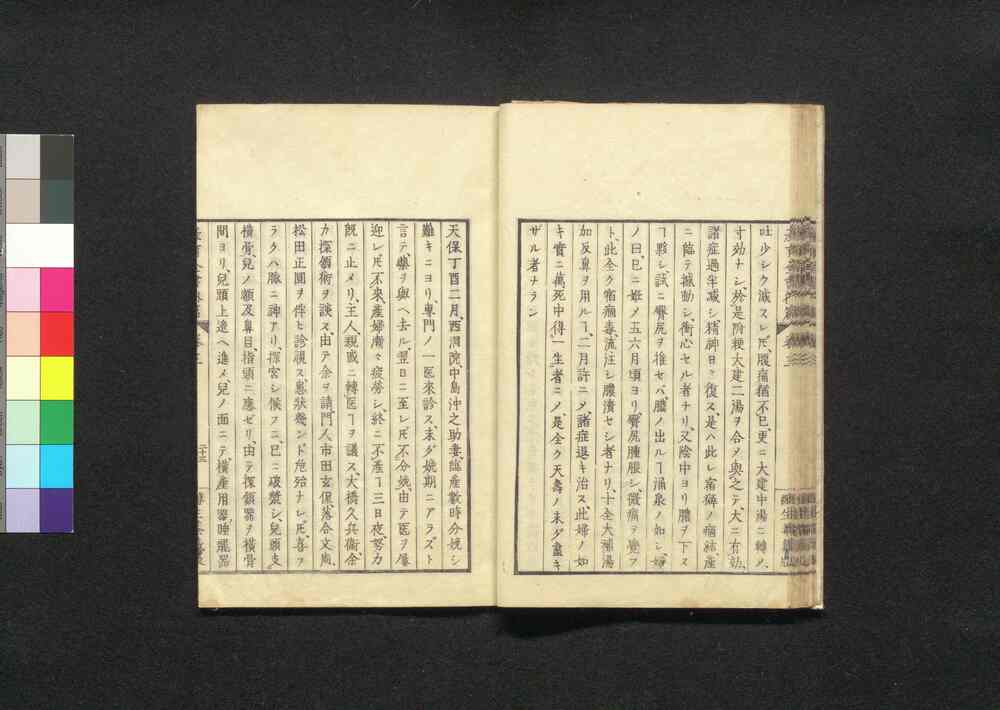 吐少シク減スレ𪜈、腹痛猶不已、更ニ大建中湯ニ轉ノ、
寸効ナシ、於是附粳大建二湯ヲ合ノ與之テ、大ニ有効、
諸症過半减シ、精神日々復ス、是ハ此レ宿癖ノ痼結、産
ニ臨テ撼動シ、衝心セル者ナリ、又陰中ヨリ膿ヲ下ス
ヿ夥シ、試ニ臀尻ヲ推セバ、膿ノ出ルヿ涌泉ノ如シ、婦
ノ曰、已ニ姙メ五六月頃ヨリ、臀尻腫脹シ、微痛ヲ覺フ
ト、此全ク宿痼毒、流注シ膿潰セシ者ナリ、十全大補湯
加反鼻ヲ用ルヿ、二月許ニメ、諸症退キ治ス、此婦ノ如
キ實ニ萬死中得一生者ニノ、是全ク天壽ノ未ダ盡キ
ザル者ナラン
天保丁酉二月、西洞院中島沖之助妻、臨産數時分娩シ
難キニヨリ、專門ノ一医來診ス、未ダ娩期ニアラズト
言テ、藥ヲ與ヘ去ル、翌日ニ至レ𪜈不分娩、由テ医ヲ屢
迎レ𪜈不來、産婦漸々疲勞シ、終ニ不産ヿ三日夜、努力
既ニ止メリ、主人親戚ニ轉医ヿヲ議ス、大橋久兵衛、余
カ探頷術ヲ談ス、由テ余ヲ請、門人市田玄保落合文哉、
松田正圓ヲ伴ヒ診視ス、患狀幾ンド危殆ナレ𪜈、喜フ
ラクハ脈ニ神アリ、探宮シ候フニ、已ニ破漿シ、兒頭支
橫骨、兒ノ額及鼻目、指頭ニ應ゼリ、由テ探頷器ヲ橫骨
間ヨリ、兒頭上邊ヘ進メ、兒ノ面ニテ橫産用器、睡龍器